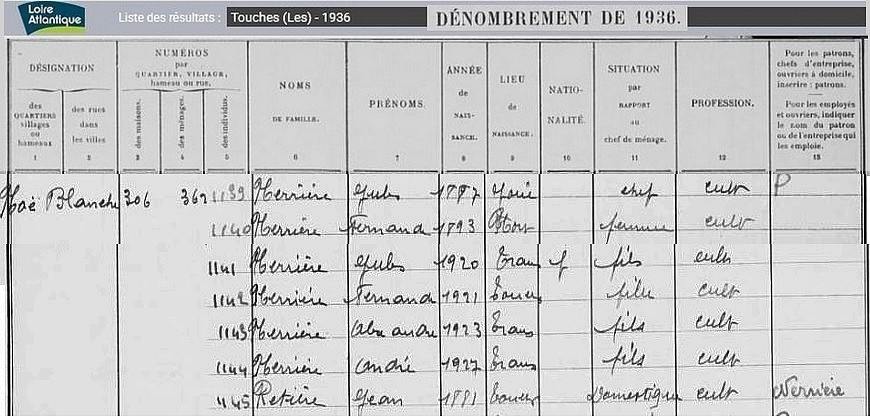 Loire Atlantique
Liste des résultats : Touches (Les) - 1936
DÉNOMBREMENT DE 1936.
DÉSIGNATION
des QUARTIERS villages ou hameaux
des rues dans les villes
NUMÉROS par QUARTIER, VILLAGE, hameau ou rue.
des maisons.
des ménages.
des individus.
NOMS DE FAMILLE.
PRÉNOMS.
ANNÉE de NAISSANCE.
LIEU de NAISSANCE.
NATIO-NALITÉ.
SITUATION par RAPPORT au chef de ménage.
PROFESSION.
Pour les patrons, chefs d'entreprise, ouvriers à domicile, inscrire : patrons.
Pour les employés et ouvriers, indiquer le nom du patron ou de l'entreprise qui les emploie.
1 2 3 4 5 6 7 8 9 10 11 12 13
Blanche 306 362 1139 Herrière Jules chef cult P
1140 Herrière Fernande 1893 femme cult
1141 Herrière Jules 1920 Trans f fils cult
1142 Herrière Fernande 1921 fille cult
1143 Herrière 1923 Trans fils cult
1144 Herrière André 1927 Trans fils cult
1145 Retière Jean Domestique cult